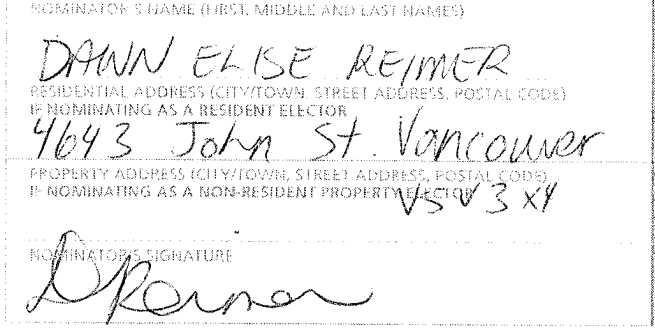 NOMINATOR'S NAME (FIRST, MIDDLE AND LAST NAMES)
DAWN ELISE REIMER
RESIDENTIAL ADDRESS (CITY/TOWN, STREET ADDRESS, POSTAL CODE)
IF NOMINATING AS A RESIDENT ELECTOR
4643 John St. Vancouver
PROPERTY ADDRESS (CITY/TOWN, STREET ADDRESS, POSTAL CODE)
IF NOMINATING AS A NON-RESIDENT PROPERTY ELECTOR
V5V 3X4
NOMINATOR'S SIGNATURE
DReimer